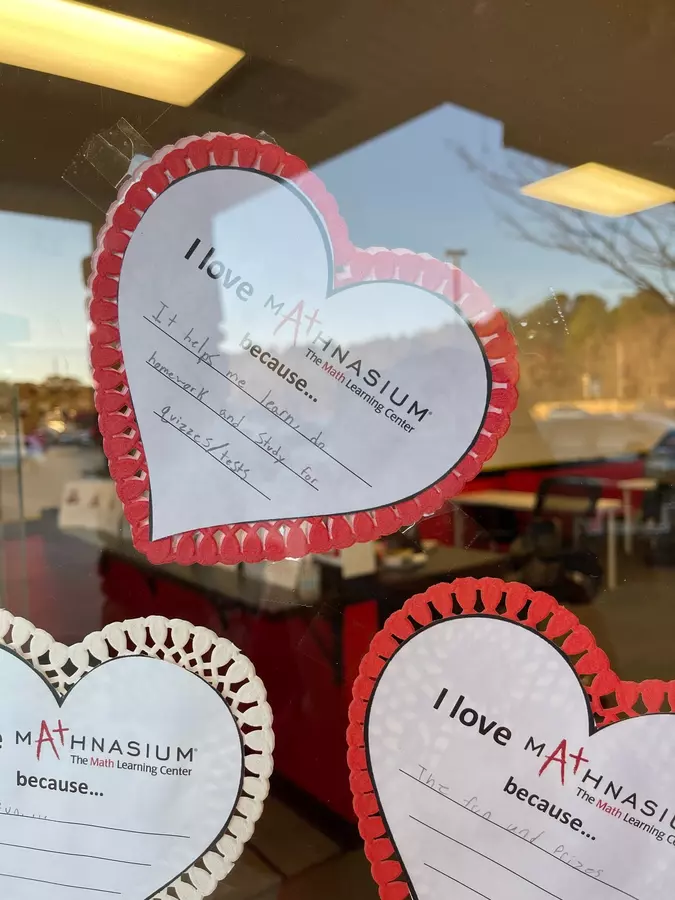 I love MA+HNASIUM®
The Math Learning Center
because...
It helps me learn, do
homework and study for
quizzes/tests
MA+HNASIUM®
The Math Learning Center
because...
I love MA+HNASIUM
The Math Learning
because...
The fun and prizes